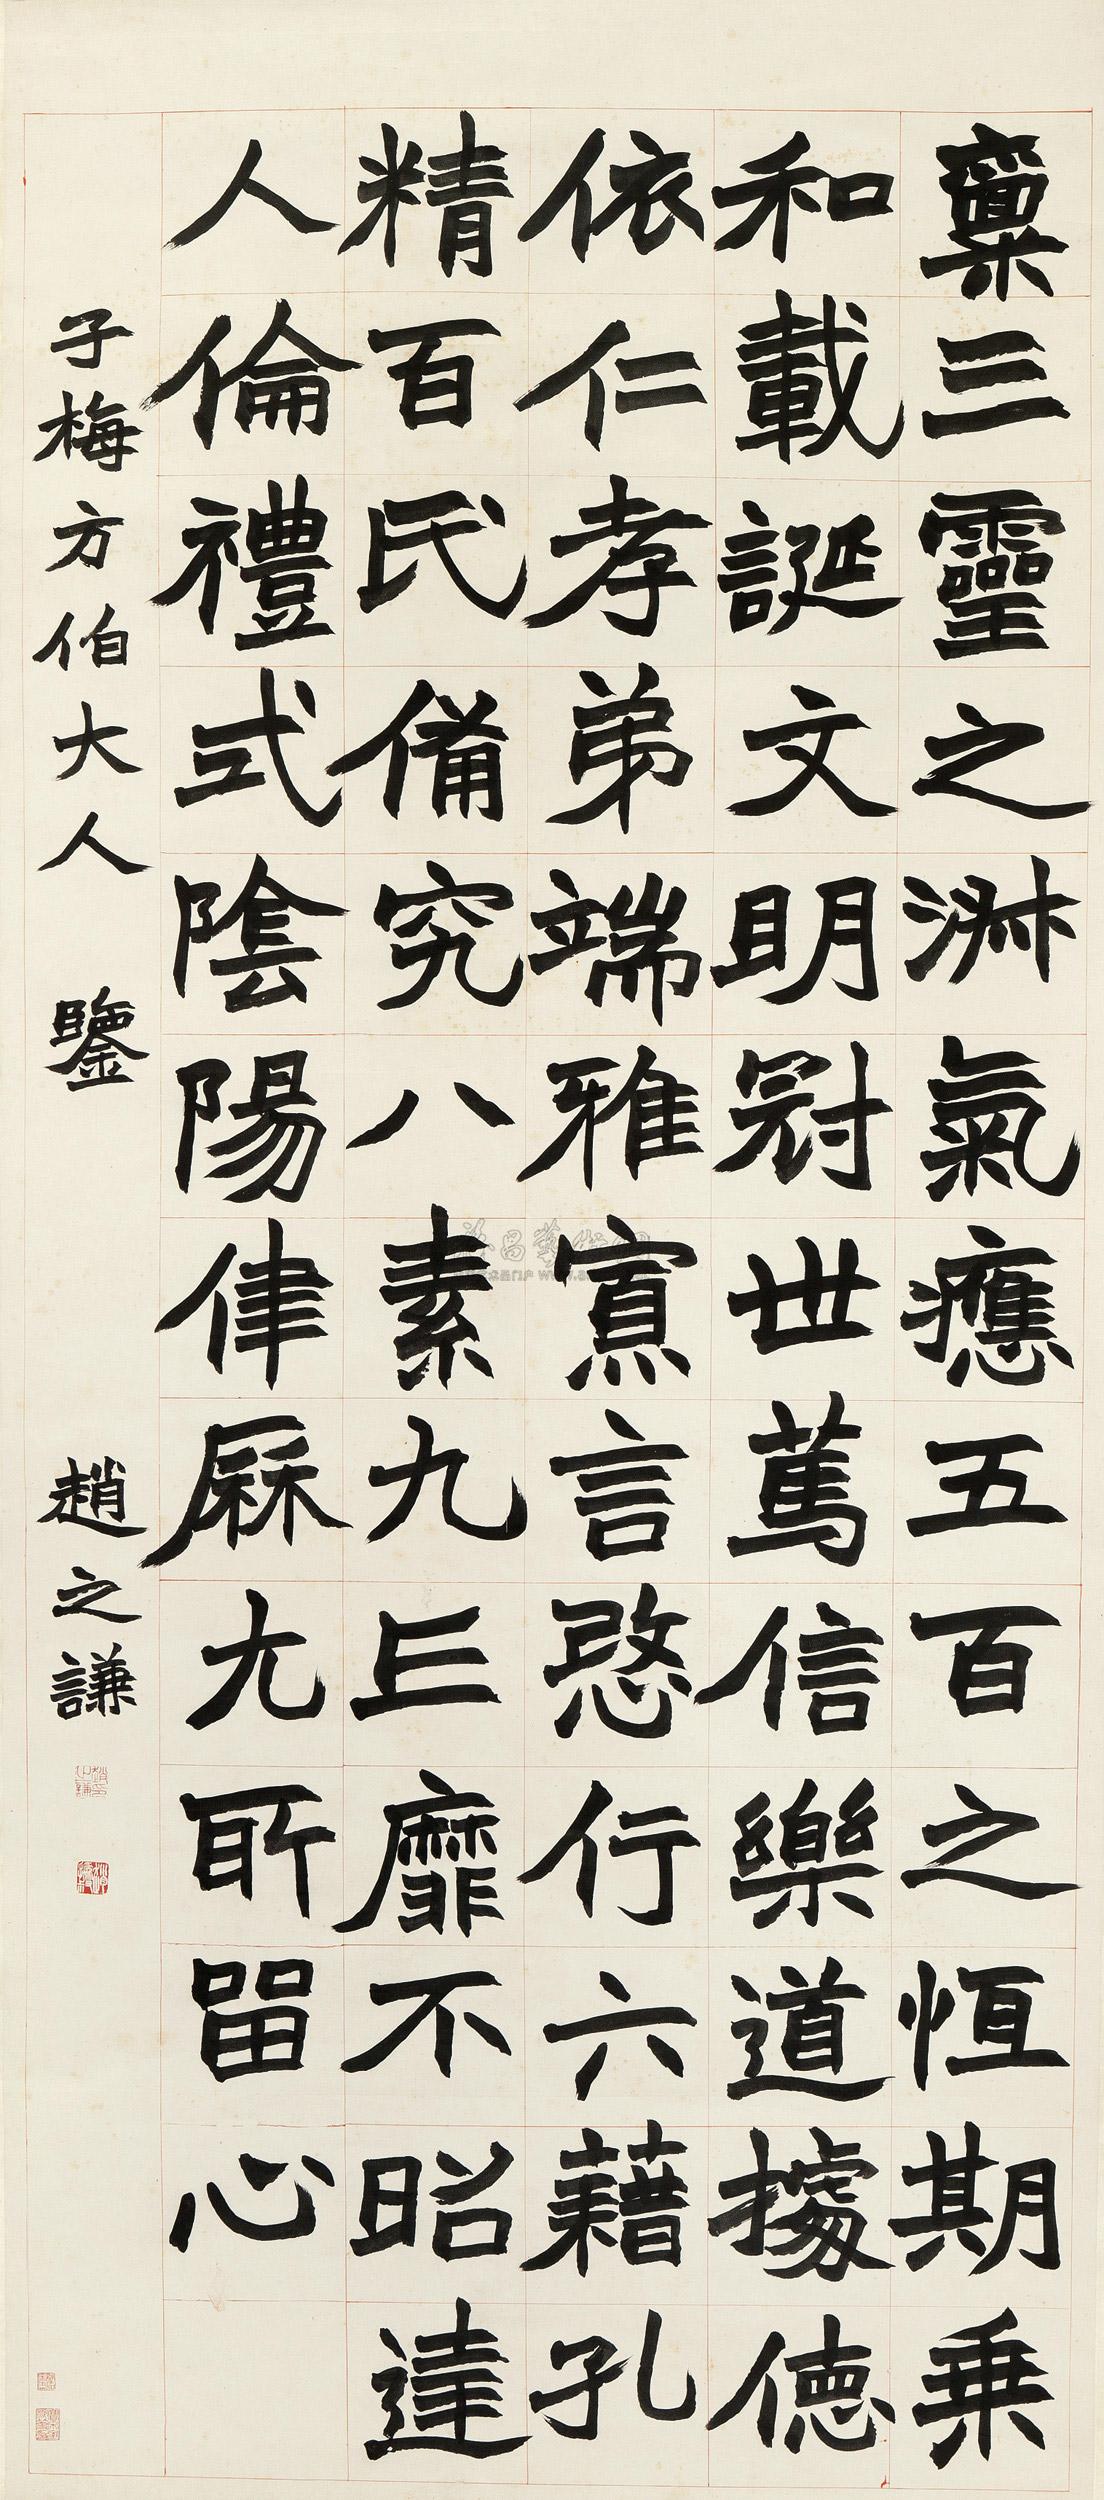 稟三靈之淋氣應五百之恆期乗
和載誕文明冠世篤信樂道據德
依仁孝弟端雅寡言愨行六藉孔
精百氏備究八素九丘靡不昭達
人倫禮式陰陽律厤尤所留心
子梅方伯大人 鑒 趙之謙